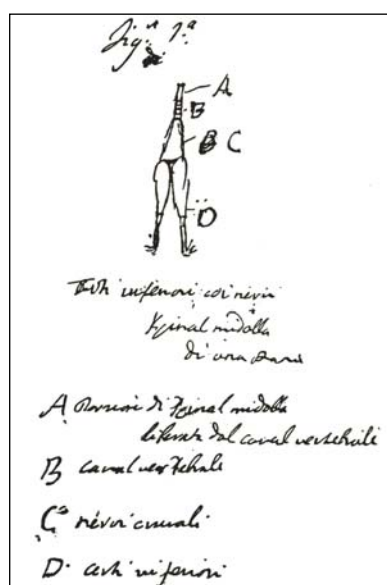 Fig.ª 1.ª
A
B
B C
D
Arti inferiori coi nervi
Spinal midolla
di una rana
A Porzioni di Spinal midolla
liberata dal canal vertebrale
B canal vertebrale
C nervi crurali
D. arti inferiori